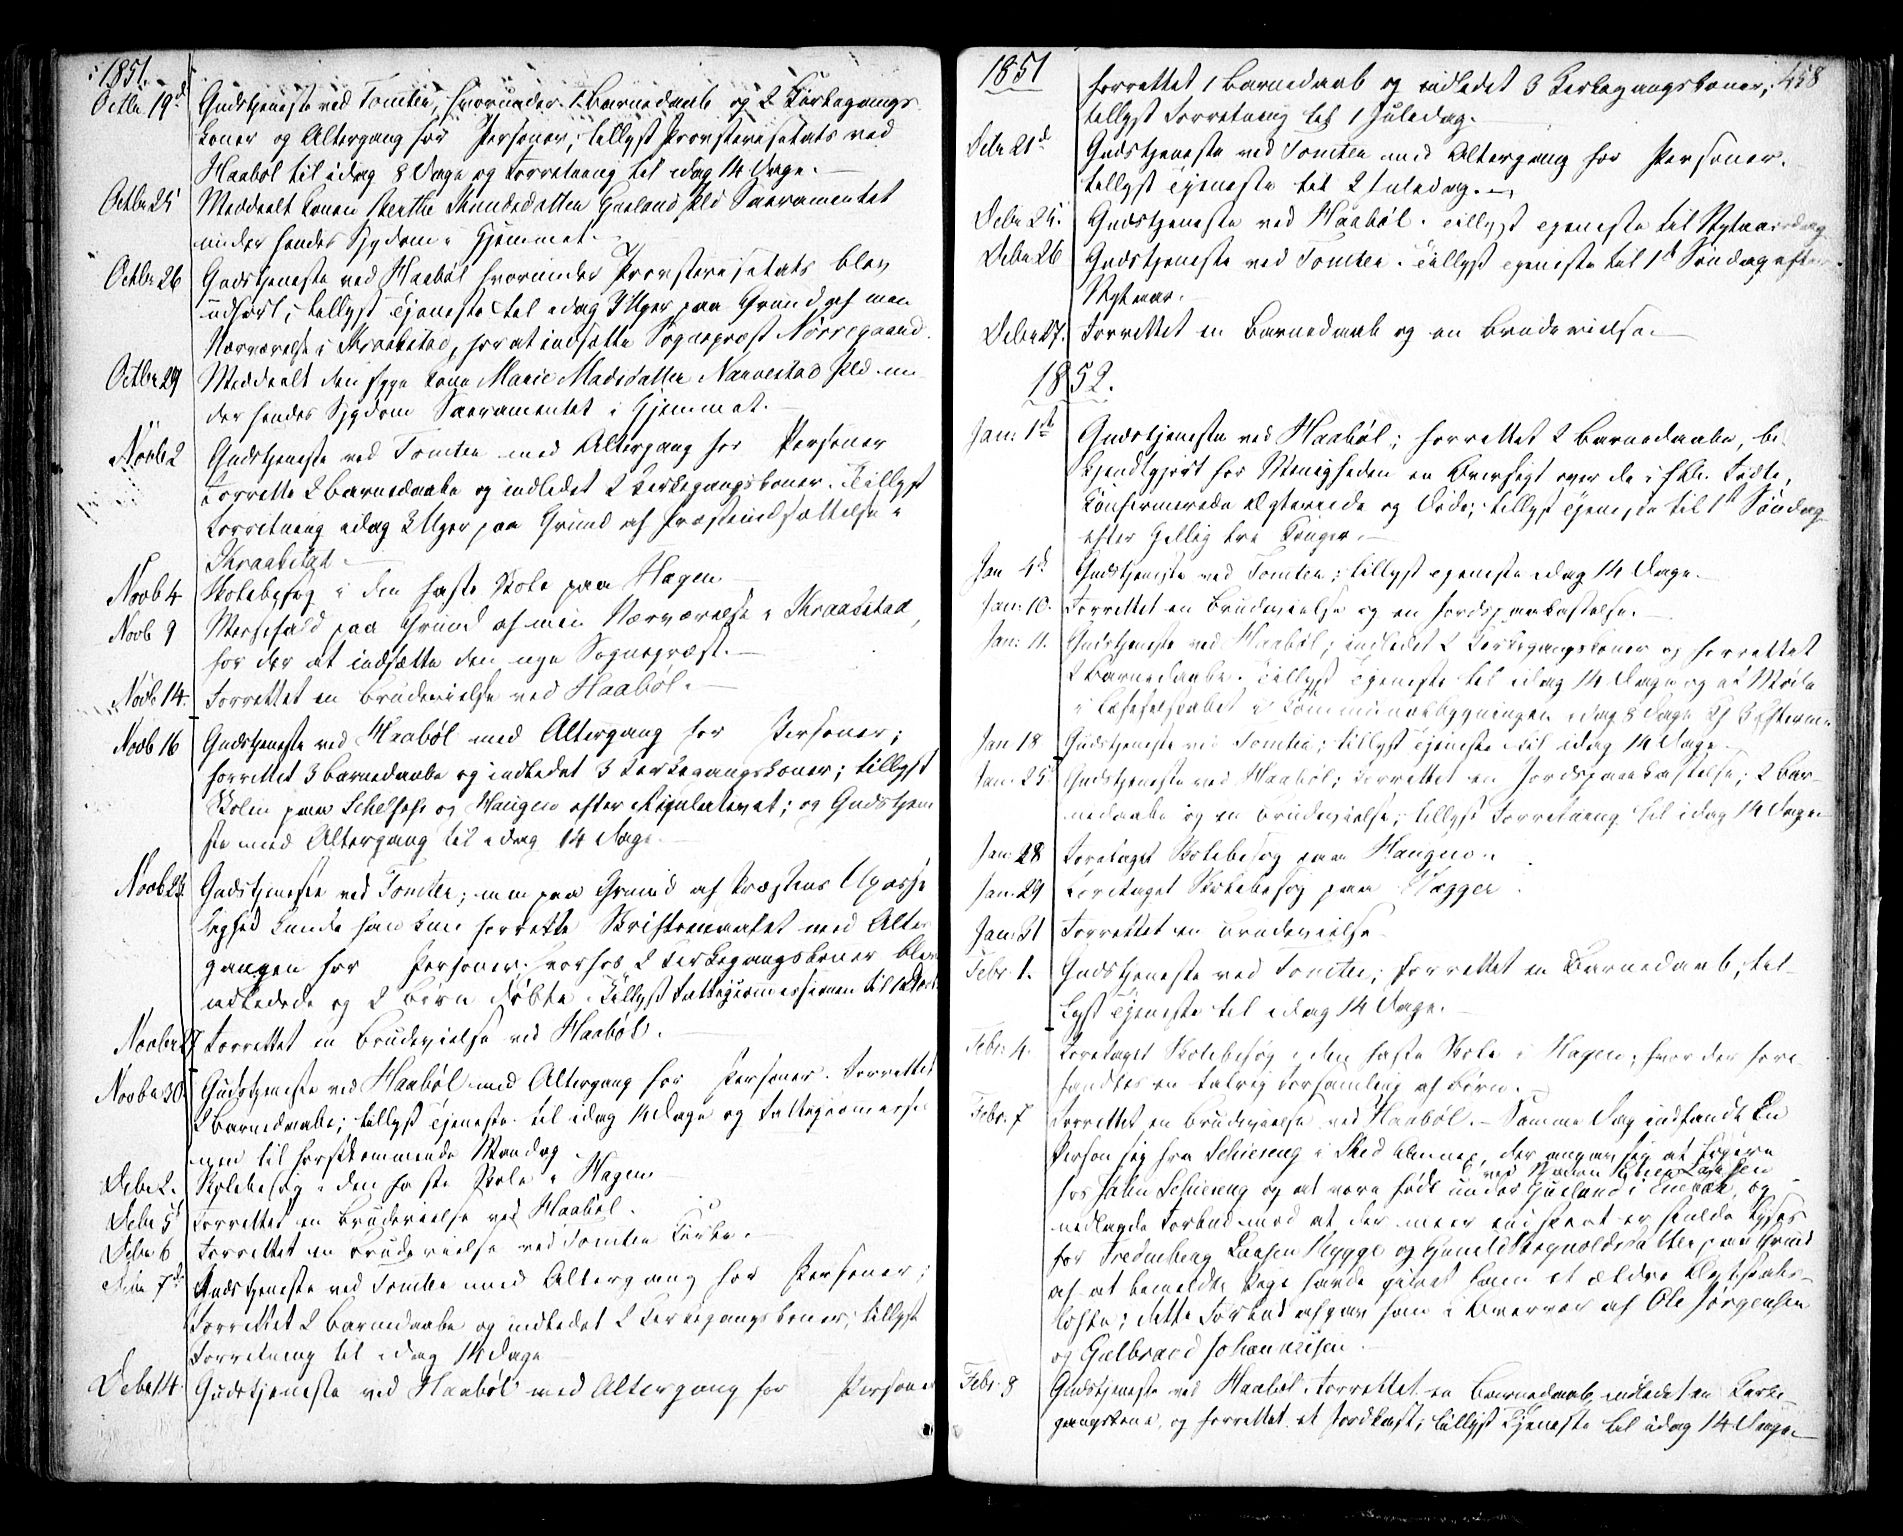 1851.
Octbr 19d Gudstjeneste ved Tomter, hvorunder 1 Barnedaab og 2 Kirkegangs
koner og Altergang for Personer; tillyst Provstevisitats ved
Haabøl til idag 8 Dage og Forretning til idag 14 Dage.
Octbr 25 Meddeelt Konen Berthe Gudeland Pld Sacramentet
under hendes Sygdom i Hjemmet.
Octbr 26 Gudstjeneste ved Haabøl hvorunder Provstevisitats blev
udført; tillyst Tjeneste til idag 3 Uger paa Grund af min
Nærværelse i Kraakstad, for at indsætte Sognepræst Nørregaard.
Octbr 29 Meddeelt den syge Kone Marie Madsdatter Narvestad Pld un-
der hendes Sygdom Sacramentet i Hjemmet.
Novbr 2 Gudstjeneste ved Tomter med Altergang for Personer
Forrettet 2 Barnedaabe og indledet 2 Kirkegangskoner. Tillyst
Forretning idag 3 Uger paa Grund af Præsteindsættelse i
Kraakstad.
Novb 4 Skolebesøg i den faste Skole paa Hagen
Novb 9 Messefald paa Grund af min Nærværelse i Kraakstad,
for der at indsætte den nye Sognepræst.
Novb 14. Forrettet en Brudevielse ved Haabøl.
Novb 16 Gudstjeneste ved Haabøl med Altergang for Personer;
forrettet 3 Barnedaabe og indledet 3 Kirkegangskoner; tillyst
Skolen paa og Haugen efter Regulativet; og Gudstjene
ste med Altergang til idag 14 Dage.
Novb 23 Gudstjeneste ved Tomter; men paa Grund af Præstens Upasse
lighed kunde han kun forrette Skriftemaalet med Alter
gangen for Personer; hvorhos 2 Kirkegangskoner blev
indledede og 2 Børn døbte. Tillyst Fattigcommissionen til
Novbr Forrettet en Brudevielse ved Haabøl.
Novbr 30. Gudstjeneste ved Haabøl med Altergang for Personer. Forrettet
2 Barnedaabe; tillyst Tjeneste til idag 14 Dage og Fattigcommissio
nen til førstkommende Mandag.
Debr 2. Skolebesøg i den faste Skole i Hagen
Debr 5t Forrettet en Brudevielse ved Haabøl.
Debr 6 Forrettet en Brudevielse ved Tomter Kirke.
Debr 7d Gudstjeneste ved Tomter med Altergang for Personer;
Forrettet 2 Barnedaabe og indledet 2 Kirkegangskoner; tillyst
Forretning til idag 14 Dage
Debr 14. Gudstjeneste ved Haabøl med Altergang for Personer
1851
458
forrettet 1 Barnedaab og indledet 3 Kirkegangskoner;
tillyst Forretning til 1 Juledag.
Debr 21d Gudstjeneste ved Tomter med Altergang for Personer.
tillyst Tjeneste til 2 Juledag.
Debr 25. Gudstjeneste ved Haabøl. Tillyst Tjeneste til Nytaarsdag
Debr 26 Gudstjeneste ved Tomter. Tillyst Tjeneste til 1t Søndag efter
Nytaar.
Debr 27. Forrettet en Barnedaab og en Brudevielse.
1852.
Jan: 1st Gudstjeneste ved Haabøl; forrettet 2 Barnedaabe, be-
kjendtgjort for Menigheden en Oversigt over de i f. Aar Fødte,
Confirmerede Ægteviede og Døde; tillyst Tjeneste til 1st Søndag
efter Hellig tre Konger.
Jan 4de Gudstjeneste ved Tomter; tillyst Tjeneste idag 14 Dage.
Jan: 10. Forrettet en Brudevielse og en Jordspaakastelse.
Jan: 11. Gudstjeneste ved Haabøl; indledet 2 Kirkegangskoner og forrettet
2 Barnedaabe. Tillyst Tjeneste til idag 14 Dage og at Møde
i Læseselskabet i Communalbygningen idag 8 Dage Kl 3 Efterm.
Jan 18 Gudstjeneste ved Tomter; tillyst Tjeneste til idag 14 Dage
Jan: 25 Gudstjeneste ved Haabøl; forrettet en Jordspaakastelse; 2 Bar-
nedaabe og en Brudevielse; tillyst Forretning til idag 14 Dage
Jan: 28 Foretaget Skolebesøg paa Haugen.
Jan: 29 Foretaget Skolebesøg paa Hægger.
Jan: 31 Forrettet en Brudevielse.
Febr. 1. Gudstjeneste ved Tomter; forrettet en Barnedaab; til-
lyst Tjeneste til idag 14 Dage.
Febr: 4. Foretaget Skolebesøg i den faste Skole i Hagen; hvor der fore-
fandtes en talrig Forsamling af Børn.
Febr. 7 Forrettet en Brudevielse ved Haabøl. Samme Dag indfandt En
Person sig fra Schiereng i Sked Annex, der angav sig at
ved Navn Larsen
hos John Schiereng og at være født under Gueland i Enebak, og
nedlagde Forbud mod at der meer end skeet er skulde lyses
for Fredenberg Larsen Rygge og Gunild paa Grund
af at bemeldte Pige havde givet ham et ældre Ægteskabs-
løfte; dette Forbud afgav han i Overvær af Ole Jørgensen
og Gulbrand Johannesen.
Febr: 8 Gudstjeneste ved Haabøl. Forrettet en Barnedaab, indledet en Kirke
gangskone og forrettet et Jordkast; tillyst Tjeneste til idag 14 Dage.